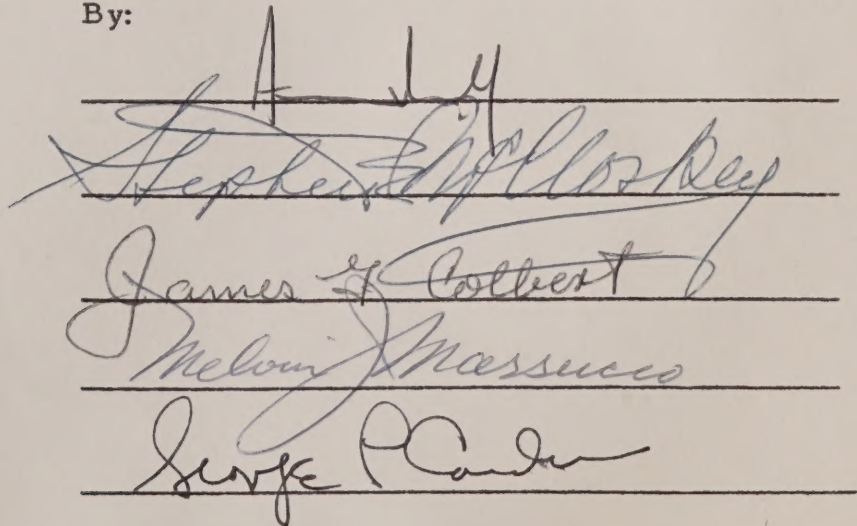 By:
Stephen E. McCloskey
James G. Colbert
Melvin J. Massucco
George P.